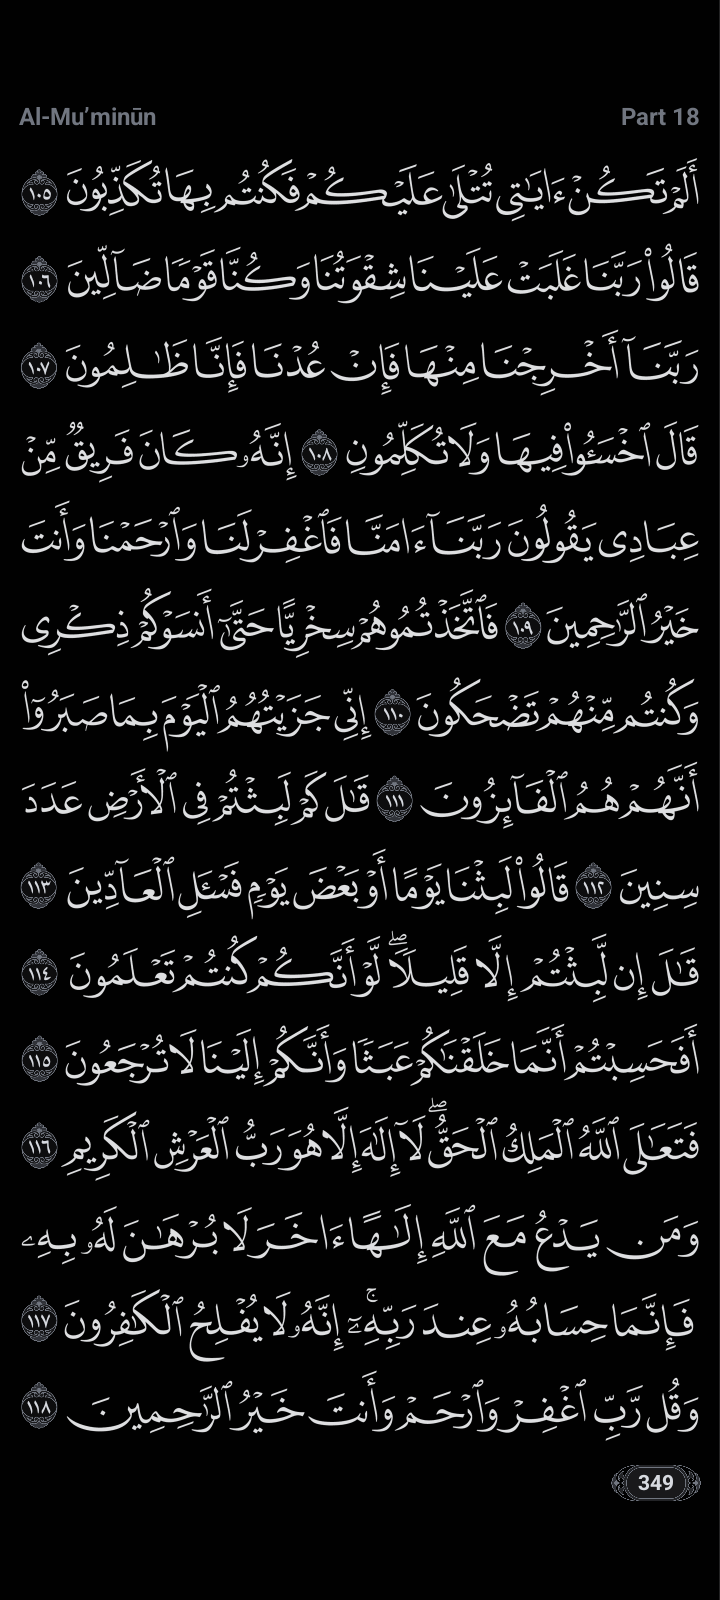 Al-Mu’minūn Part 18
أَلَمۡ تَكُنۡ ءَايَٰتِي تُتۡلَىٰ عَلَيۡكُمۡ فَكُنتُم بِهَا تُكَذِّبُونَ ١٠٥
قَالُواْ رَبَّنَا غَلَبَتۡ عَلَيۡنَا شِقۡوَتُنَا وَكُنَّا قَوۡمٗا ضَآلِّينَ ١٠٦
رَبَّنَآ أَخۡرِجۡنَا مِنۡهَا فَإِنۡ عُدۡنَا فَإِنَّا ظَٰلِمُونَ ١٠٧
قَالَ ٱخۡسَـُٔواْ فِيهَا وَلَا تُكَلِّمُونِ ١٠٨ إِنَّهُۥ كَانَ فَرِيقٞ مِّنۡ
عِبَادِي يَقُولُونَ رَبَّنَآ ءَامَنَّا فَٱغۡفِرۡ لَنَا وَٱرۡحَمۡنَا وَأَنتَ
خَيۡرُ ٱلرَّٰحِمِينَ ١٠٩ فَٱتَّخَذۡتُمُوهُمۡ سِخۡرِيًّا حَتَّىٰٓ أَنسَوۡكُمۡ ذِكۡرِي
وَكُنتُم مِّنۡهُمۡ تَضۡحَكُونَ ١١٠ إِنِّي جَزَيۡتُهُمُ ٱلۡيَوۡمَ بِمَا صَبَرُوٓاْ
أَنَّهُمۡ هُمُ ٱلۡفَآئِزُونَ ١١١ قَٰلَ كَمۡ لَبِثۡتُمۡ فِي ٱلۡأَرۡضِ عَدَدَ
سِنِينَ ١١٢ قَالُواْ لَبِثۡنَا يَوۡمًا أَوۡ بَعۡضَ يَوۡمٖ فَسۡـَٔلِ ٱلۡعَآدِّينَ ١١٣
قَٰلَ إِن لَّبِثۡتُمۡ إِلَّا قَلِيلٗاۖ لَّوۡ أَنَّكُمۡ كُنتُمۡ تَعۡلَمُونَ ١١٤
أَفَحَسِبۡتُمۡ أَنَّمَا خَلَقۡنَٰكُمۡ عَبَثٗا وَأَنَّكُمۡ إِلَيۡنَا لَا تُرۡجَعُونَ ١١٥
فَتَعَٰلَى ٱللَّهُ ٱلۡمَلِكُ ٱلۡحَقُّۖ لَآ إِلَٰهَ إِلَّا هُوَ رَبُّ ٱلۡعَرۡشِ ٱلۡكَرِيمِ ١١٦
وَمَن يَدۡعُ مَعَ ٱللَّهِ إِلَٰهًا ءَاخَرَ لَا بُرۡهَٰنَ لَهُۥ بِهِۦ
فَإِنَّمَا حِسَابُهُۥ عِندَ رَبِّهِۦٓۚ إِنَّهُۥ لَا يُفۡلِحُ ٱلۡكَٰفِرُونَ ١١٧
وَقُل رَّبِّ ٱغۡفِرۡ وَٱرۡحَمۡ وَأَنتَ خَيۡرُ ٱلرَّٰحِمِينَ ١١٨
349